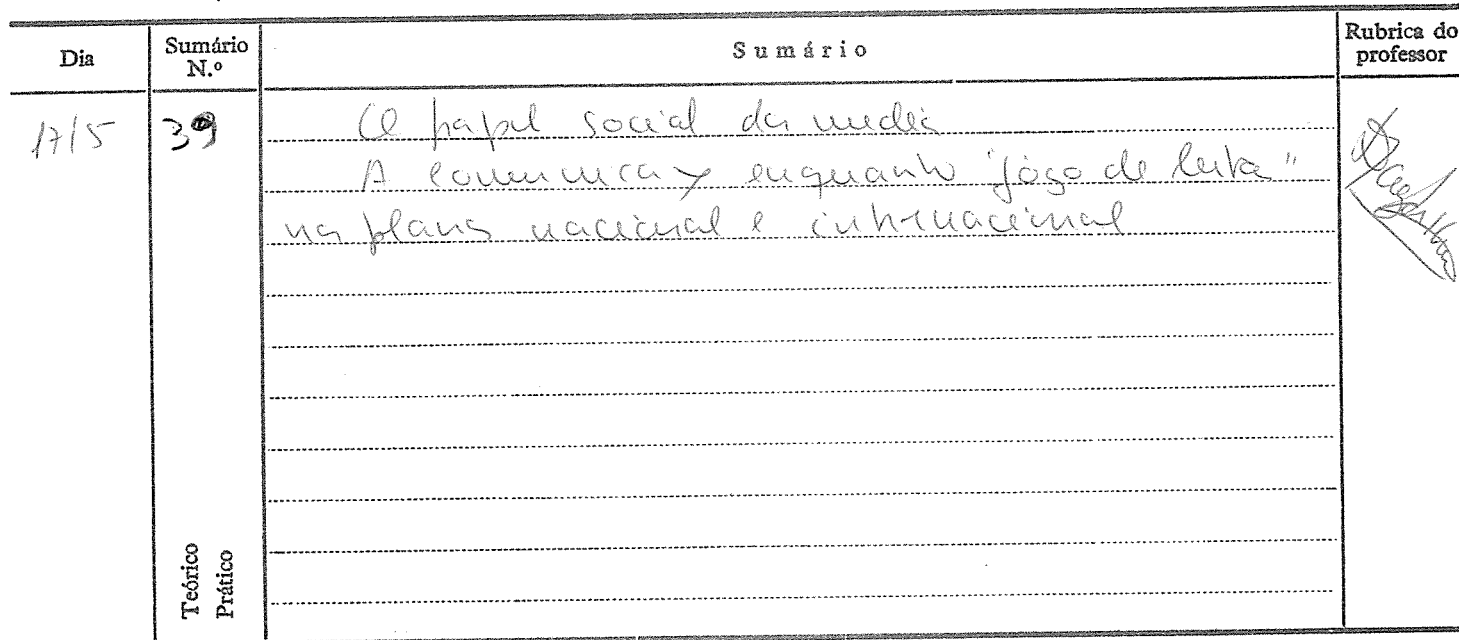 Dia
Sumário N.º
Sumário
Rubrica do professor
17/5
39
O papel social dos media
A comunicaç enquanto "jogo de luta"
nos planos nacional e internacional
Teórico
Prático